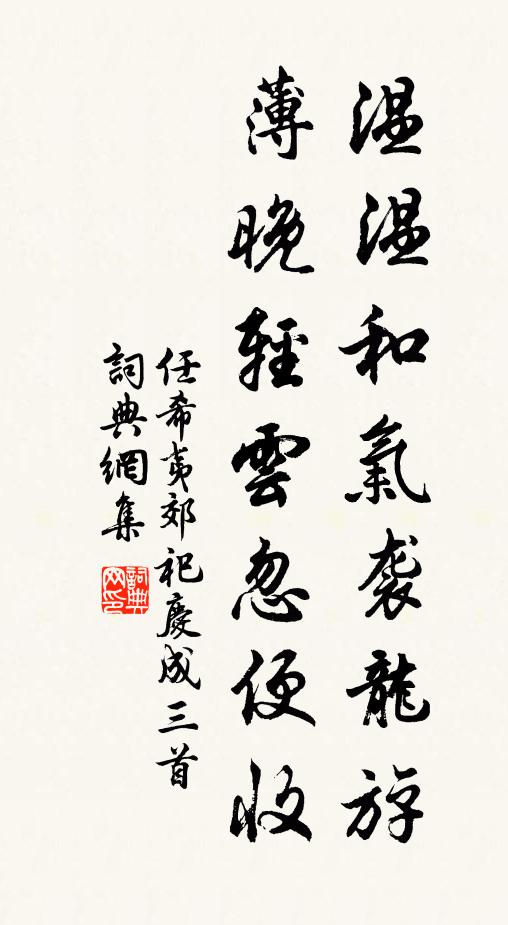 温温和氣袭龍斿
薄晚輕雲忽便收
任希夷郊祀慶成三首
詞典網集
詞典
网印